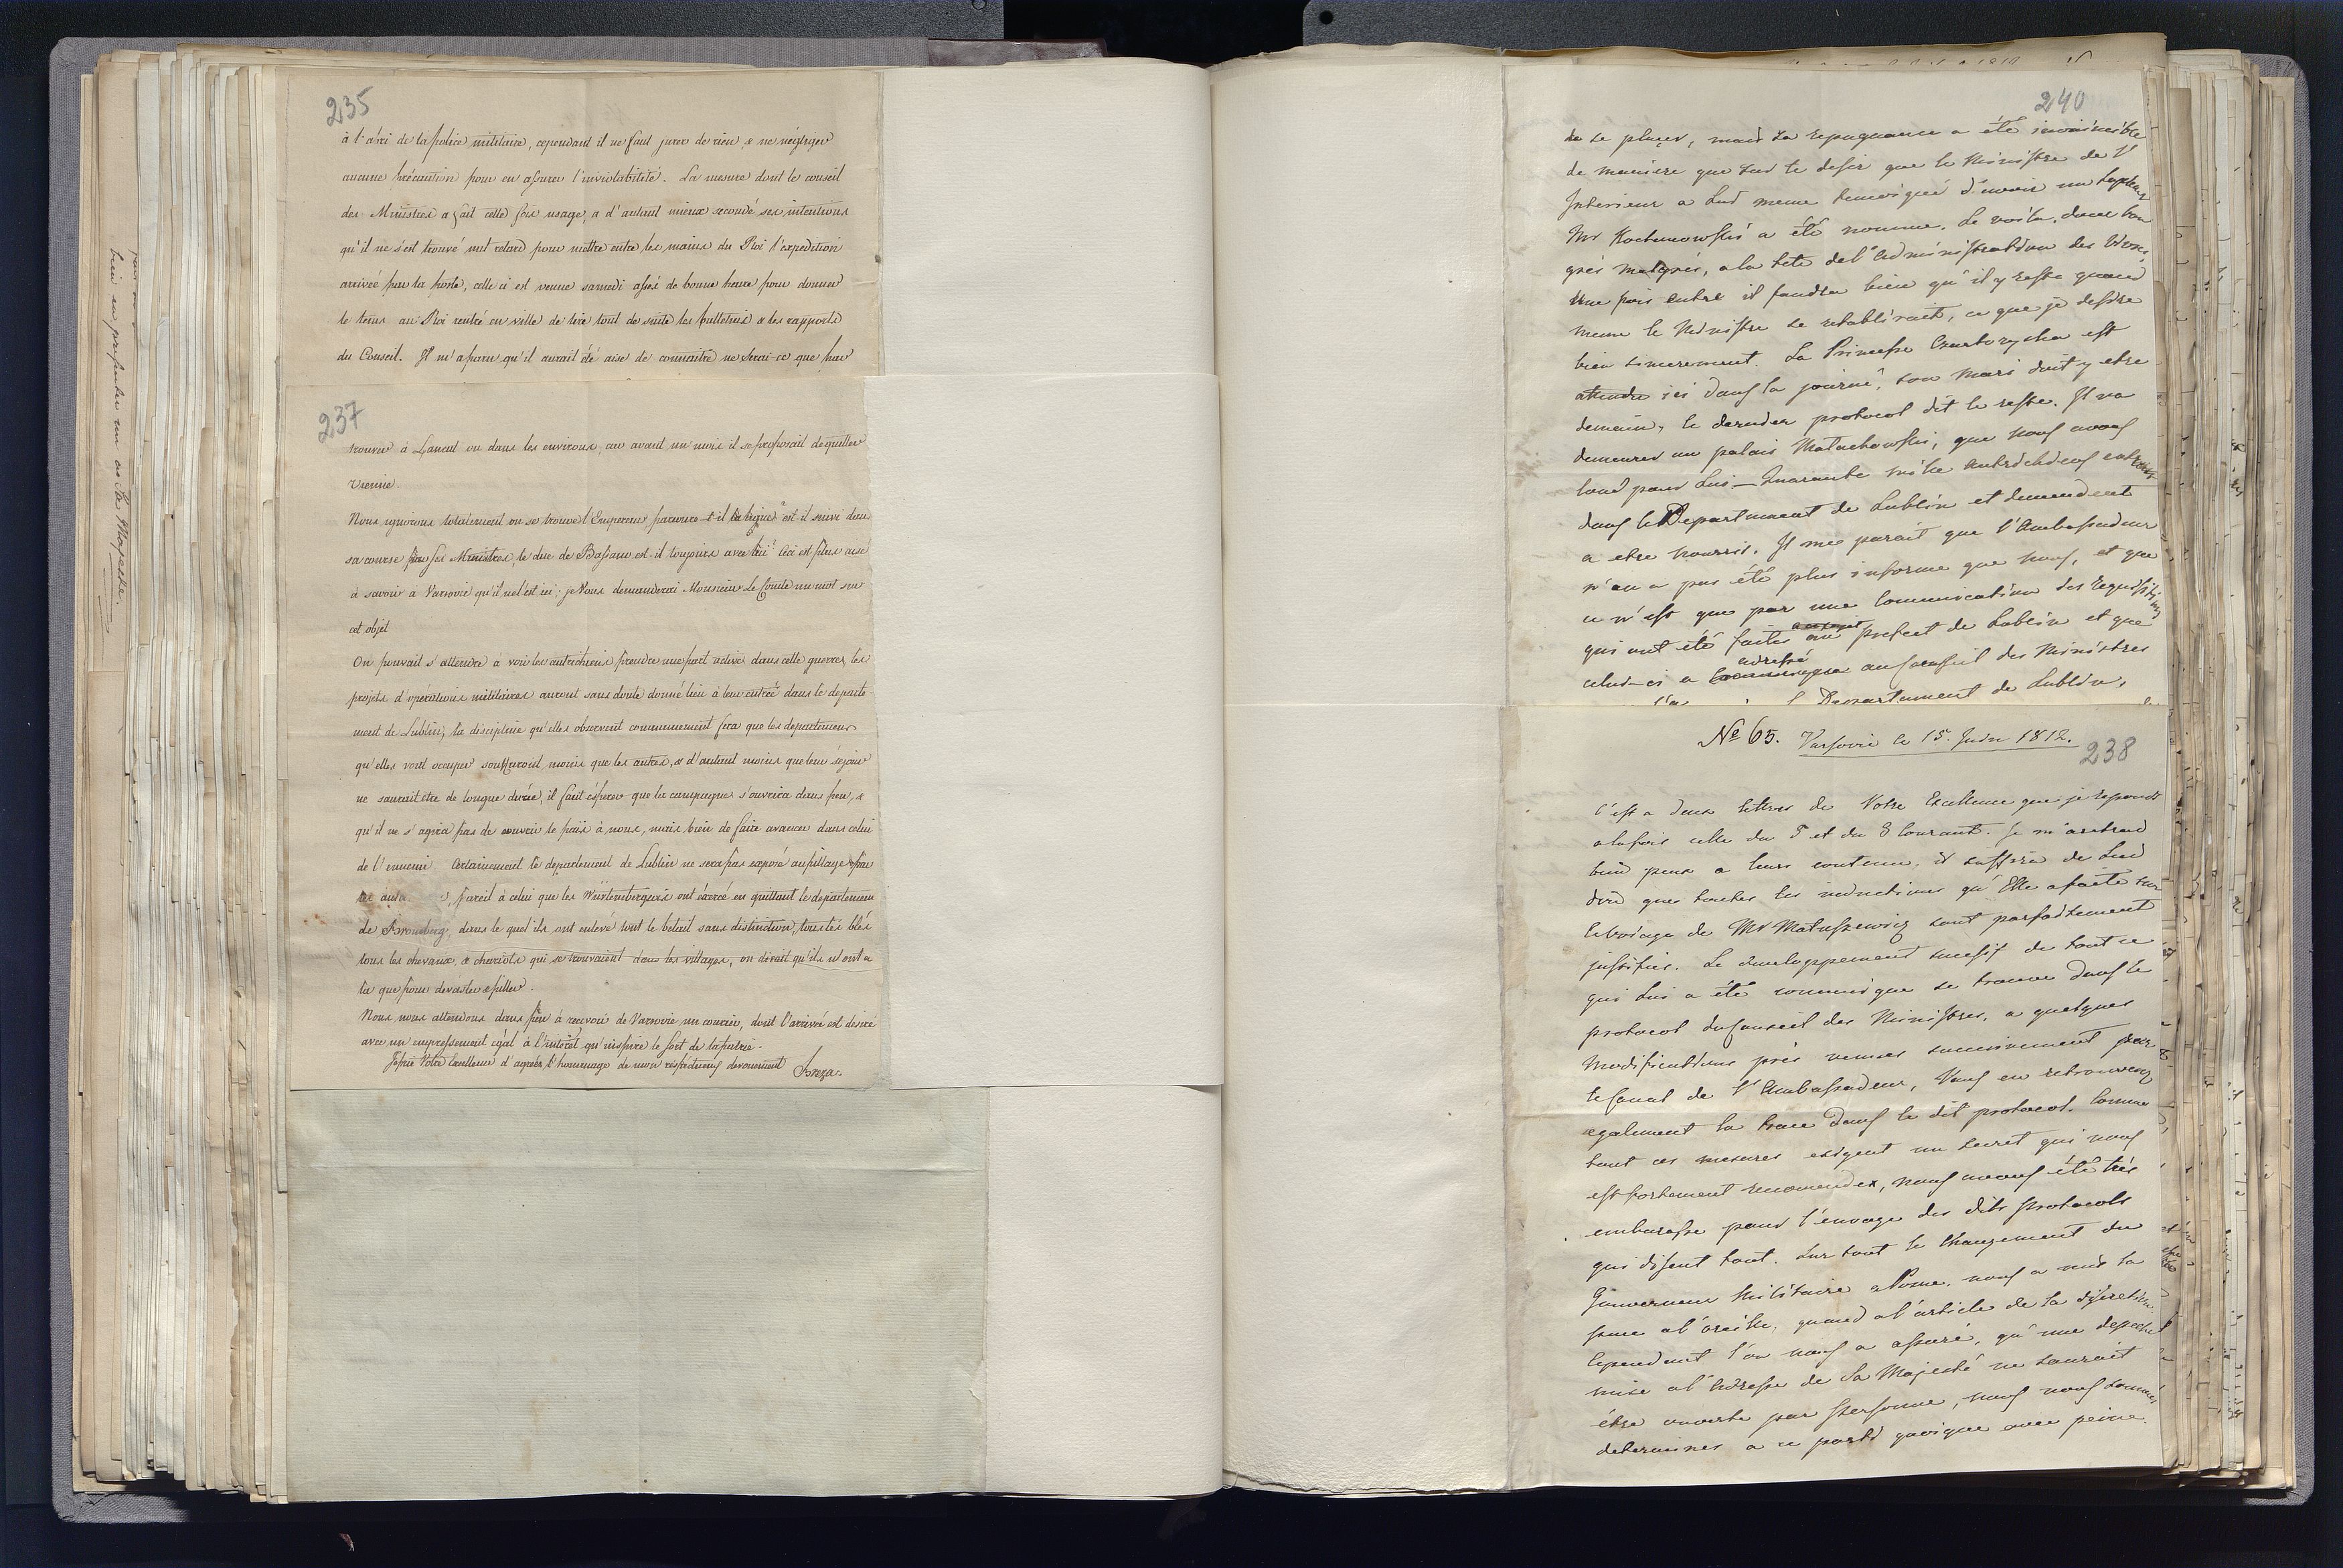 235
à l'abri de la police militaire, cependant il ne faut jurer de rien, & ne négliger
aucune précaution pour en assurer l'inviolabilité. La mesure dont le conseil
des Ministres a fait cette fois usage, a d'autant mieux secondé ses intentions
qu'il ne s'est trouvé nul retard pour mettre entre les mains du Roi l'expedition
arrivée par la poste, celle ci est venue samedi assés de bonne heure pour donner
le tems au Roi rentré en ville de lire tout de suite les bulletins & les rapports
du Conseil. Il m'a paru qu'il aurait été aise de connaitre ne serai-ce que par
237
trouver à Lancut ou dans les environs, car avant un mois il se proposait de quitter
Vienne.
Nous ignorons totalement ou se trouve l'Empereur est il suivi dans
sa course par ses Ministres, le duc de Bassano est il toujours avec lui? Ceci est plus aisé
à savoir à Varsovie qu'il ne l'est ici; je Vous demanderai Monsieur Le Comte un mot sur
cet objet
On pouvait s'attendre à voir les autrichiens prendre une part active dans cette guerre, les
projets d'opérations militaires auront sans doute donné lieu à leur entrée dans le departe-
ment de Lublin; la discipline qu'elles observent communement fera que les departemens
qu'elles vont occuper souffriroit moins que les autres, & d'autant moins que leur séjour
ne saurait être de longue durée, il faut espérer que la campagne s'ouvrira dans peu, &
qu'il ne s'agira pas de couvrir le païs à nous, mais bien de faire avancer dans celui
de l'ennemi. Certainement le departement de Lublin ne sera pas exposé au pillage
pareil à celui que les Würtembergeois ont exercé en quittant le departement
de Bromberg, dans le quel ils ont enlevé tout le betail sans distinction, tous les blés
tous les chevaux, & chariots qui se trouvaient dans les villages, on dirait qu'ils n'ont
là que pour devaster & piller.
Nous nous attendons dans peu à recevoir de Varsovie un courier, dont l'arrivée est desiré
avec un empressement égal à l'intérêt qu'inspire le sort de la patrie.
Je prie Votre Excellence d'agréer l'homage de mon respectueux devouement Breza.
bien en presenter un ou Sa Majesté.
240
de se placer, mais sa repugnance a été invincible
de maniere que sur le desir que le Ministre de l'
Interieur a Lui meme temoigné d'avoir un
Mr Kochanowski a été nommé. Le voila donc bon
grés malgrés, a la tete de l'administration des
Une fois entré il faudra bien qu'il y reste quand
meme le Ministre se retablirait, ce que je desire
bien sincerement. La Princesse Czartoryska est
attendue ici dans la journé, son mari doit y etre
demain, le dernier protocol dit le reste. Il va
demeurer au palais Malachowski, que nous avons
loué pour Lui – Quarante mille Autrichiens entrent
dans le Departement de Lublin et demandent
a etre nourris. Il me parait que l'Ambassadeur
n'en a pas été plus informe que nous, et que
ce n'est que par une Communication des requisitions
qui ont été faites au prefect de Lublin et que
celui-ci a adressé au Conseil des Ministres
Departement de Lublin,
№ 65. Varsovie le 15. Juin 1812.
238
C'est a deux lettres de Votre Excellence que je reponds
a la fois celle du 5 et du 8 Courant. Je m'aretrend
bien peux a leurs contenu, il suffira de Lui
dire que toutes les inductions qu'Elle a faite sur
le voiage de Mr Matuszewicz sont parfaitement
justifiés. Le developpement succesif de tout ce
qui Lui a été communiqué se trouve dans le
protocol du Conseil des Ministres, a quelques
Modifications près venues successivement par
le Canal de l'Ambassadeur, Vous en retrouverez
egalement la trace dans le dit protocol. Comme
tout ces mesures exigent un secret qui nous
est fortement recomendez, nous avons été très
embarasse pour l'envoye des dits protocols
qui disent tout. Sur tout le changement du
Gouverneur Militaire a Posne, nous a mis la
puce a l'oreille, quand a l'article de la discretion.
Cependant l'on nous a assuré, qu'une depeche
mise a l'adresse de Sa Majesté ne saurait
être ouverte par personne, nous nous sommes
determinés a ce parti quoique avec peine.